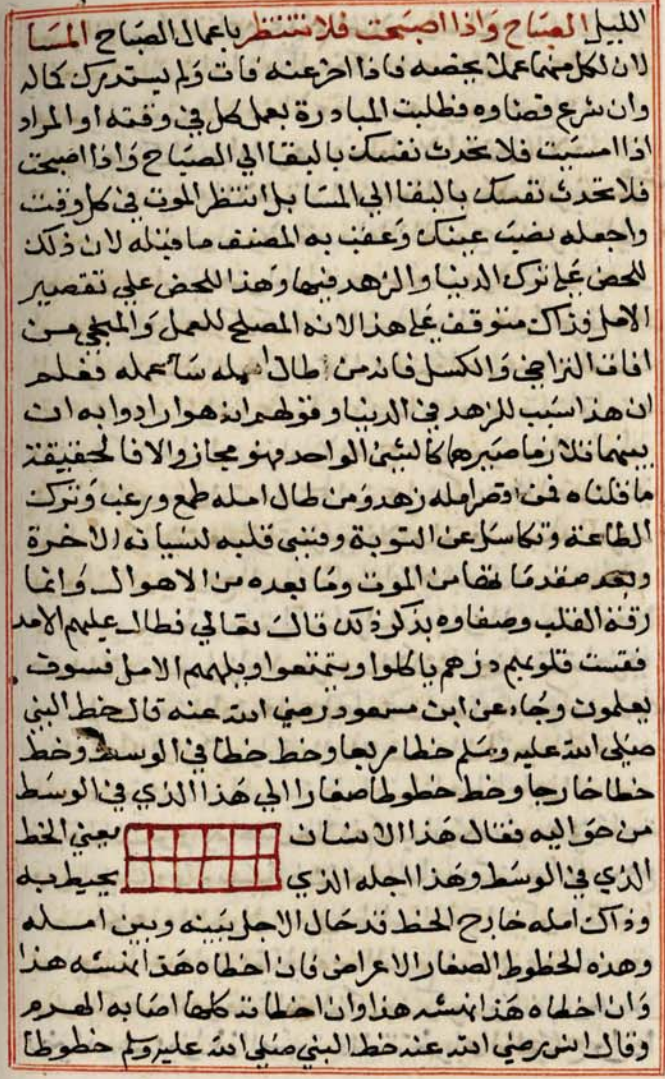 الليل الصباح واذا اصبحت فلا تنتظر باعمال الصباح المسا
لان لكل منهما عملا يخصه فاذا اخر عنه فات ولم يستدرك كماله
وان شرع قضاوه فطلبت المبادرة بعمل كل في وقته او المراد
اذا امسيت فلا تحدث نفسك بالبقا الي الصباح واذا اصبحت
فلا تحدث نفسك بالبقا الي المسا بل انتظر الموت في كل وقت
واجعله نصب عينك وعقب به المصنف ما قبله لان ذلك
للحض علي ترك الدنيا والزهد فيها وهذا للحض علي تقصير
الامل وذاك متوقف علي هذا لانه المصلح للعمل والمنجي من
افات التراخي والكسل فانه من طال امله سا عمله فعلم
ان هذا سبب للزهد في الدنيا وقولهم انه هو ارادوا به ان
بينهما تلازما صيرهما كالشي الواحد فهو مجاز والا فالحقيقة
ما قلناه فمن قصر امله زهد ومن طال امله طمع ورغب وترك
الطاعة وتكاسل عن التوبة وقسي قلبه لنسيانه الاخرة
ومقدماتها من الموت وما بعده من الاهوال وانما
رقة القلب وصفاوه بذكر ذلك قال تعالي فطال عليهم الامد
فقست قلوبهم ذرهم ياكلوا ويتمتعوا ويلههم الامل فسوف
يعلمون وجاء عن ابن مسعود رضي الله عنه قال خط النبي
صلي الله عليه وسلم خطا مربعا وخط خطا في الوسط وخط
خطا خارجا وخط خطوطا صغارا الي هذا الذي في الوسط
من حواليه فقال هذا الانسان يعني الخط
الذي في الوسط وهذا اجله الذي يحيط به
وذاك امله خارج الخط قد حال الاجل بينه وبين امله
وهذه الخطوط الصغار الاعراض فان اخطاه هذا نهشه هذا
وان اخطاه هذا نهشه هذا وان اخطاته كلها اصابه الهرم
وقال انس رضي الله عنه خط النبي صلي الله عليه وسلم خطوطا